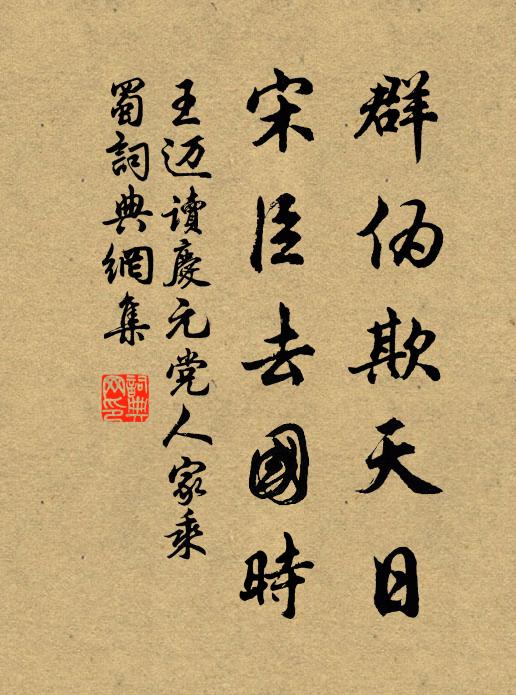 群伪欺天日
宋臣去國時
王迈讀慶元党人家乘
蜀詞典網集
詞典網印